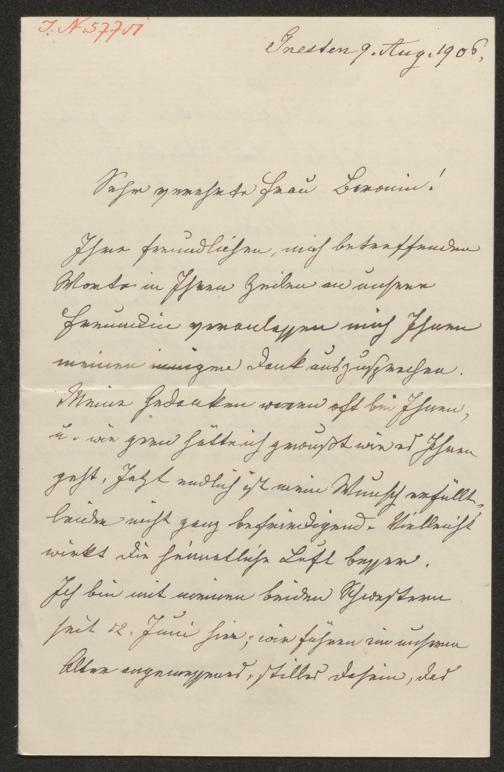 I. N. 577 VI
Gresten 9. Aug. 1906.
Sehr verehrte Frau Baronin!
Ihre freundlichen, mich betreffenden
Worte in Ihren Zeilen an unsere
Freundin veranlassen mich Ihnen
meinen innigen Dank auszusprechen.
Meine Gedanken waren oft bei Ihnen,
u. wie gern hätte ich gewußt wie es Ihnen
geht, Jetzt endlich ist mein Wunsch erfüllt,
leider nicht ganz befriedigend. Vielleicht
wirkt die heimatliche Luft besser.
Ich bin mit meinen beiden Schwestern
seit 12. Juni hier; wir führen ein unserem
Alter angemessenes, stilles Dasein, das